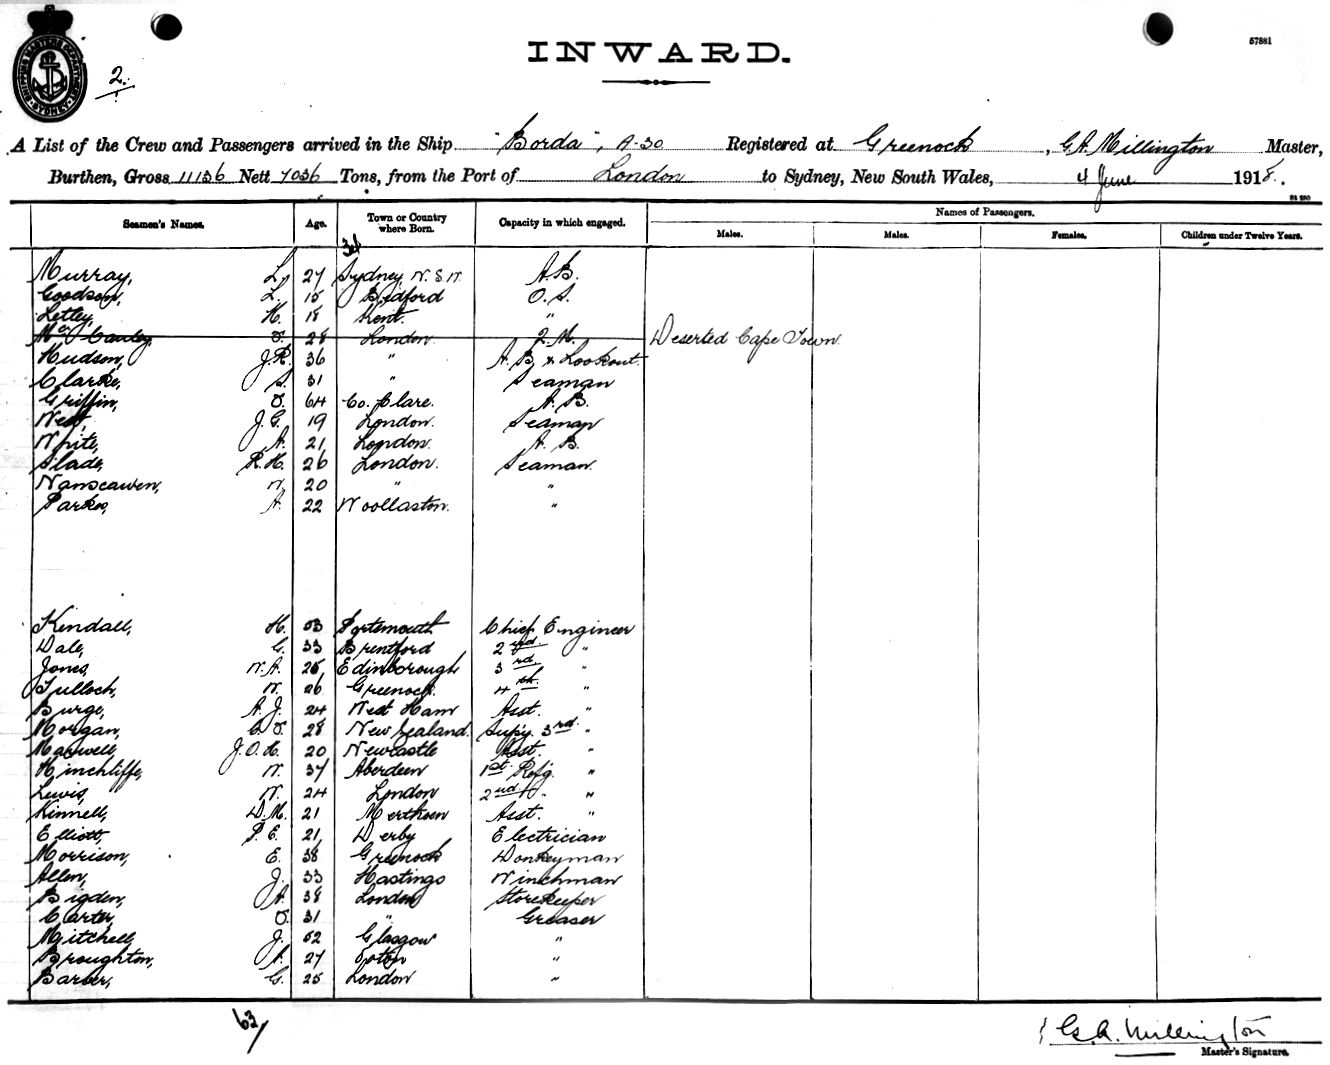 SHIPPING MASTERS DEPARTMENT SYDNEY
2.
INWARD.
57881
A List of the Crew and Passengers arrived in the Ship "Borda", A-30 Registered at Greenock, G.A. Millington Master,
Burthen, Gross 11136 Nett 7036 Tons, from the Port of London to Sydney, New South Wales, 4 June 1918.
Seamen's Names. Age. Town or Country where Born. Capacity in which engaged. Names of Passengers.
Males. Males. Females. Children under Twelve Years.
Murray, L. 27 Sydney, N.S.W. A.B.
Goodson, L. 15 Bedford O.S.
Letley, H. 18 Kent. "
McCauley 28 London Q.M. Deserted Cape Town
Hudson, J.R. 36 " A.B. & Lookout
Clarke, S. 31 " Seaman
Griffin, 64 Co. Clare. A.B.
West, J.G. 19 London. Seaman
White, A. 21 London. A.B.
Slade, R.H. 26 London. Seaman.
Nanscawen, W. 20 " "
Parkes, A. 22 Woollaston. "
Kendall, H. 53 Portsmouth Chief Engineer
Dale, G. 33 Brentford 2nd "
Jones, W.A. 25 Edinborough 3rd "
Tulloch, W. 26 Greenock. 4th "
Burge, A.J. 24 West Ham Asst. "
Morgan, 28 New Zealand. Supy. 3rd "
Maxwell, J.O.H. 20 Newcastle Asst. "
Hinchliffe, W. 37 Aberdeen 1st Refg. "
Lewis, W. 24 London 2nd " "
Kinnell, D.M. 21 Asst. "
Elliott, P.E. 21, Derby Electrician
Morrison, E. 38 Greenock Donkeyman
Allen, J. 33 Hastings Winchman
Bigden, A. 38 London Storekeeper
Carter, 31 " Greaser
Mitchell, J. 52 Glasgow "
Broughton, A. 27 "
Barber, G. 25 London "
63/
G.A. Millington
Master's Signature.